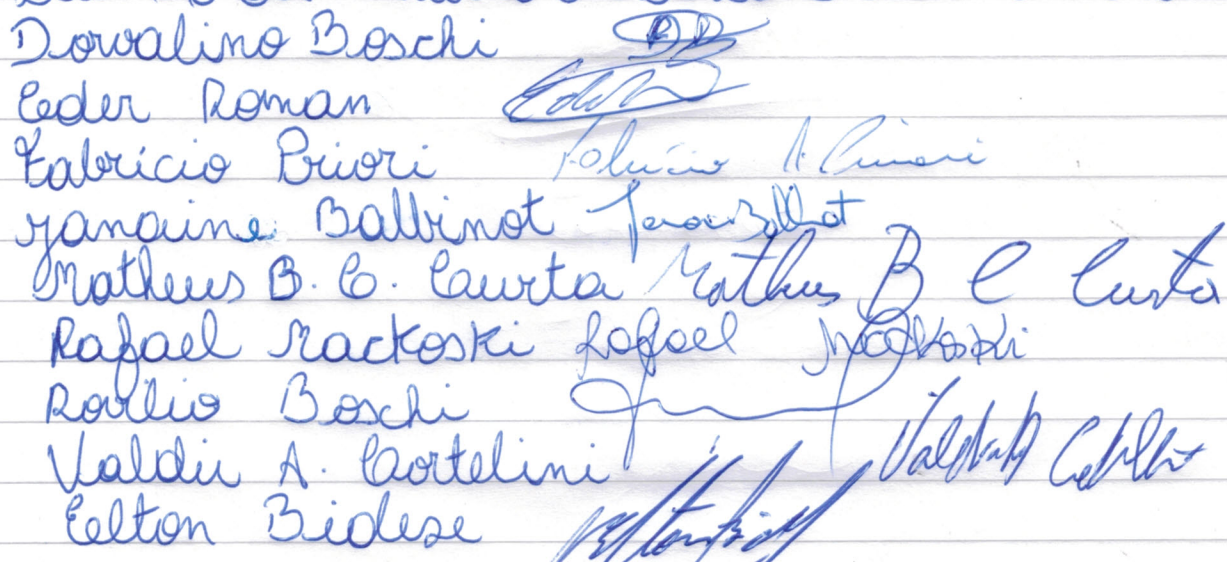 Dorvalino Boschi
Eder Roman
Fabrício Priori Fabrício A. Priori
Janaine Balbinot
Matheus B. C. Curta Matheus B C Curta
Rafael Mackoski Rafael Mackoski
Rovilio Boschi
Valdir A. Cortelini
Eelton Bidese